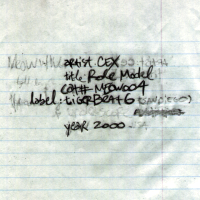 artist. CEX
title Role Model
CAT# MEOW004
label: tiGERBEAt6
year 2000